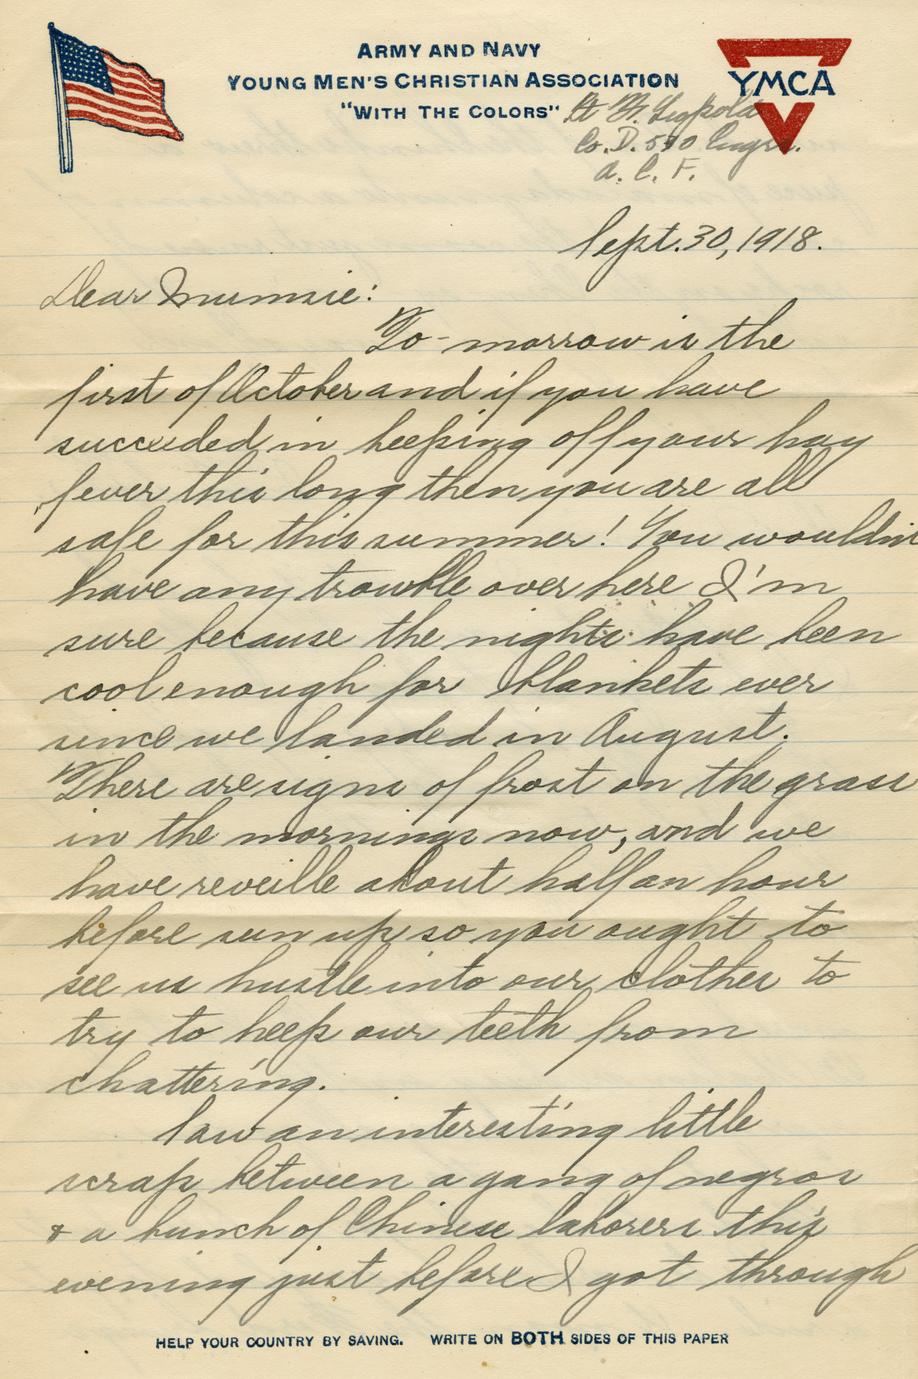 ARMY AND NAVY
YOUNG MEN'S CHRISTIAN ASSOCIATION
"WITH THE COLORS"
YMCA
Lt
Co. D. Engrs.
A. E. F.
Sept. 30, 1918.
Dear Mumsie:
To-morrow is the
first of October and if you have
succeeded in keeping off your hay
fever this long then you are all
safe for this summer! You wouldn't
have any trouble over here I'm
sure because the nights have been
cool enough for blankets ever
since we landed in August.
There are signs of frost on the grass
in the mornings now, and we
have reveille about half an hour
before sun up, so you ought to
see us hustle into our clothes to
try to keep our teeth from
chattering.
Saw an interesting little
scrap between a gang of negros
& a bunch of Chinese laborers this
evening just before I got through
HELP YOUR COUNTRY BY SAVING. WRITE ON BOTH SIDES OF THIS PAPER